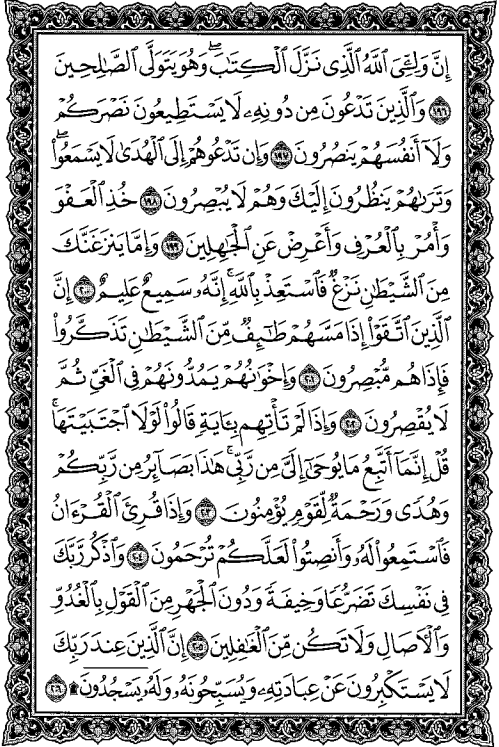 إِنَّ وَلِـِّۧيَ ٱللَّهُ ٱلَّذِي نَزَّلَ ٱلْكِتَٰبَۖ وَهُوَ يَتَوَلَّى ٱلصَّٰلِحِينَ
١٩٦ وَٱلَّذِينَ تَدْعُونَ مِن دُونِهِۦ لَا يَسْتَطِيعُونَ نَصْرَكُمْ
وَلَآ أَنفُسَهُمْ يَنصُرُونَ ١٩٧ وَإِن تَدْعُوهُمْ إِلَى ٱلْهُدَىٰ لَا يَسْمَعُوا۟ۖ
وَتَرَىٰهُمْ يَنظُرُونَ إِلَيْكَ وَهُمْ لَا يُبْصِرُونَ ١٩٨ خُذِ ٱلْعَفْوَ
وَأْمُرْ بِٱلْعُرْفِ وَأَعْرِضْ عَنِ ٱلْجَٰهِلِينَ ١٩٩ وَإِمَّا يَنزَغَنَّكَ
مِنَ ٱلشَّيْطَٰنِ نَزْغٌ فَٱسْتَعِذْ بِٱللَّهِۚ إِنَّهُۥ سَمِيعٌ عَلِيمٌ ٢٠٠ إِنَّ
ٱلَّذِينَ ٱتَّقَوْا۟ إِذَا مَسَّهُمْ طَٰٓئِفٌ مِّنَ ٱلشَّيْطَٰنِ تَذَكَّرُوا۟
فَإِذَا هُم مُّبْصِرُونَ ٢٠١ وَإِخْوَٰنُهُمْ يَمُدُّونَهُمْ فِي ٱلْغَيِّ ثُمَّ
لَا يُقْصِرُونَ ٢٠٢ وَإِذَا لَمْ تَأْتِهِم بِـَٔايَةٍ قَالُوا۟ لَوْلَا ٱجْتَبَيْتَهَاۚ
قُلْ إِنَّمَآ أَتَّبِعُ مَا يُوحَىٰٓ إِلَيَّ مِن رَّبِّيۚ هَٰذَا بَصَآئِرُ مِن رَّبِّكُمْ
وَهُدًى وَرَحْمَةٌ لِّقَوْمٍ يُؤْمِنُونَ ٢٠٣ وَإِذَا قُرِئَ ٱلْقُرْءَانُ
فَٱسْتَمِعُوا۟ لَهُۥ وَأَنصِتُوا۟ لَعَلَّكُمْ تُرْحَمُونَ ٢٠٤ وَٱذْكُر رَّبَّكَ
فِي نَفْسِكَ تَضَرُّعًا وَخِيفَةً وَدُونَ ٱلْجَهْرِ مِنَ ٱلْقَوْلِ بِٱلْغُدُوِّ
وَٱلْءَاصَالِ وَلَا تَكُن مِّنَ ٱلْغَٰفِلِينَ ٢٠٥ إِنَّ ٱلَّذِينَ عِندَ رَبِّكَ
لَا يَسْتَكْبِرُونَ عَنْ عِبَادَتِهِۦ وَيُسَبِّحُونَهُۥ وَلَهُۥ يَسْجُدُونَ ۩ ٢٠٦